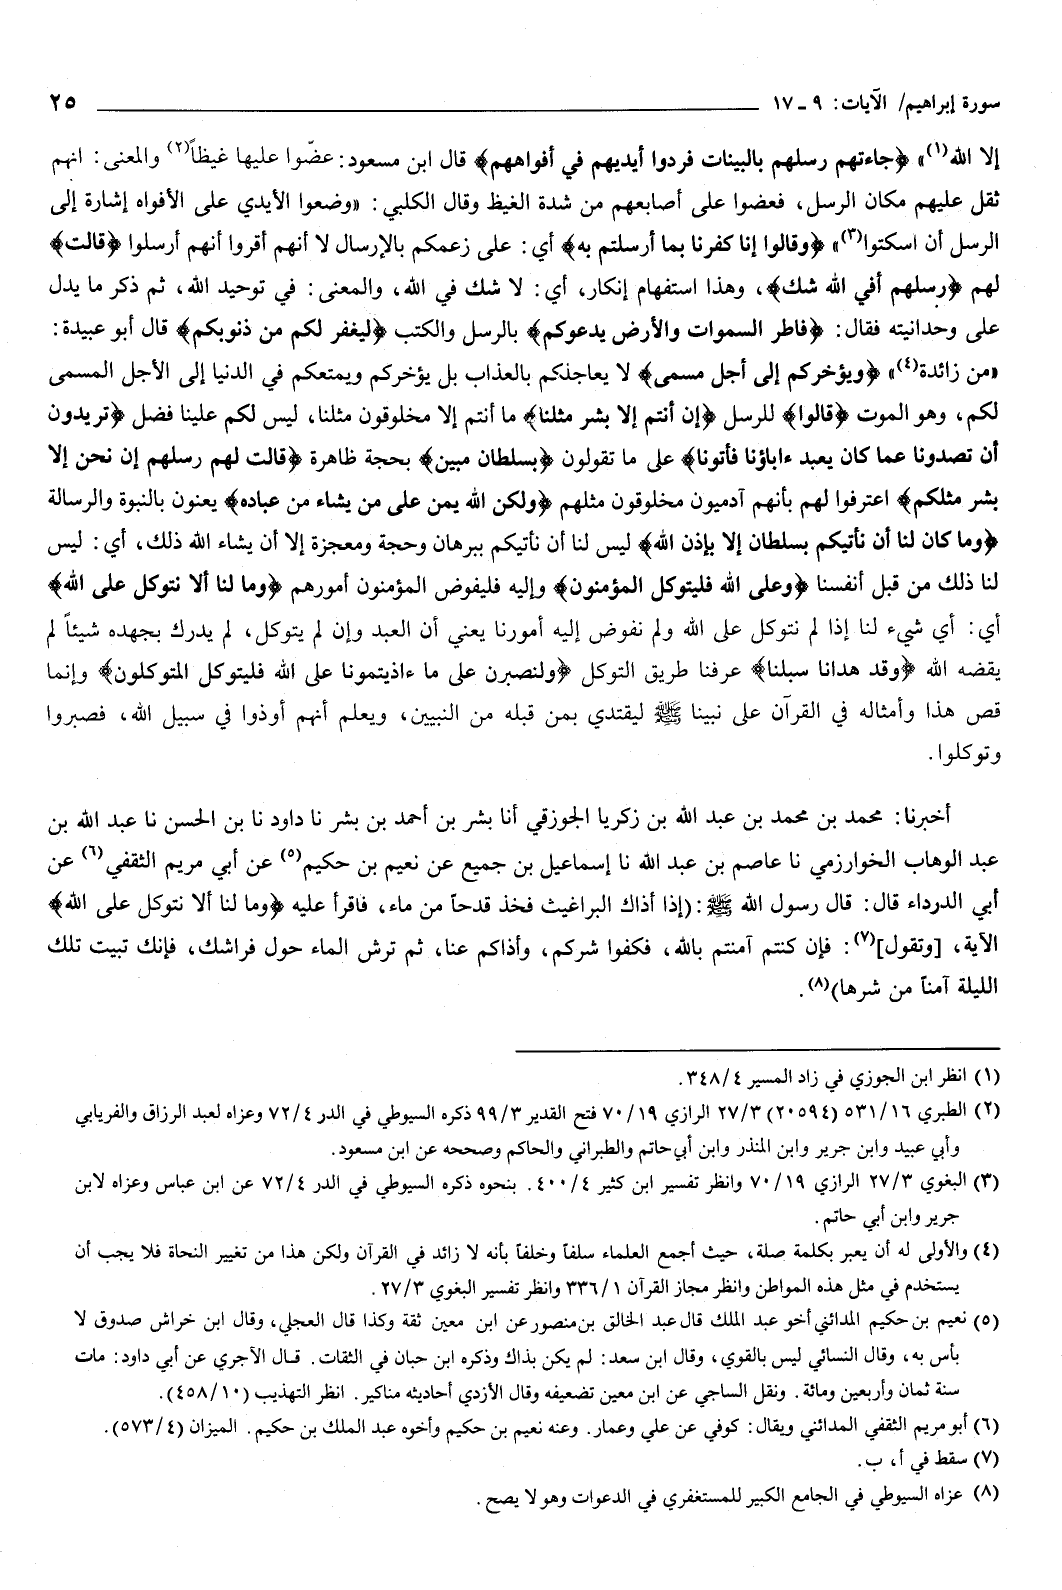 سورة إبراهيم/ الآيات: ٩ ـ ١٧ ٢٥
إلا الله(١)» ﴿جاءتهم رسلهم بالبينات فردوا أيديهم في أفواههم﴾ قال ابن مسعود: عضّوا عليها غيظاً(٢) والمعنى: انهم
ثقل عليهم مكان الرسل، فعضوا على أصابعهم من شدة الغيظ وقال الكلبي: «وضعوا الأيدي على الأفواه إشارة إلى
الرسل أن اسكتوا(٣)» ﴿وقالوا إنا كفرنا بما أرسلتم به﴾ أي: على زعمكم بالإرسال لا أنهم أقروا أنهم أرسلوا ﴿قالت﴾
لهم ﴿رسلهم أفي الله شك﴾، وهذا استفهام إنكار، أي: لا شك في الله، والمعنى: في توحيد الله، ثم ذكر ما يدل
على وحدانيته فقال: ﴿فاطر السموات والأرض يدعوكم﴾ بالرسل والكتب ﴿ليغفر لكم من ذنوبكم﴾ قال أبو عبيدة:
«من زائدة(٤)» ﴿ويؤخركم إلى أجل مسمى﴾ لا يعاجلكم بالعذاب بل يؤخركم ويمتعكم في الدنيا إلى الأجل المسمى
لكم، وهو الموت ﴿قالوا﴾ للرسل ﴿إن أنتم إلا بشر مثلنا﴾ ما أنتم إلا مخلوقون مثلنا، ليس لكم علينا فضل ﴿تريدون
أن تصدونا عما كان يعبد ءاباؤنا فأتونا﴾ على ما تقولون ﴿بسلطان مبين﴾ بحجة ظاهرة ﴿قالت لهم رسلهم إن نحن إلا
بشر مثلكم﴾ اعترفوا لهم بأنهم آدميون مخلوقون مثلهم ﴿ولكن الله يمن على من يشاء من عباده﴾ يعنون بالنبوة والرسالة
﴿وما كان لنا أن نأتيكم بسلطان إلا بإذن الله﴾ ليس لنا أن نأتيكم ببرهان وحجة ومعجزة إلا أن يشاء الله ذلك، أي: ليس
لنا ذلك من قبل أنفسنا ﴿وعلى الله فليتوكل المؤمنون﴾ وإليه فليفوض المؤمنون أمورهم ﴿وما لنا ألا نتوكل على الله﴾
أي: أي شيء لنا إذا لم نتوكل على الله ولم نفوض إليه أمورنا يعني أن العبد وإن لم يتوكل، لم يدرك بجهده شيئاً لم
يقضه الله ﴿وقد هدانا سبلنا﴾ عرفنا طريق التوكل ﴿ولنصبرن على ما ءاذيتمونا على الله فليتوكل المتوكلون﴾ وإنما
قص هذا وأمثاله في القرآن على نبينا ﷺ ليقتدي بمن قبله من النبيين، ويعلم أنهم أوذوا في سبيل الله، فصبروا
وتوكلوا.
أخبرنا: محمد بن محمد بن عبد الله بن زكريا الجوزقي أنا بشر بن أحمد بن بشر نا داود نا بن الحسن نا عبد الله بن
عبد الوهاب الخوارزمي نا عاصم بن عبد الله نا إسماعيل بن جميع عن نعيم بن حكيم(٥) عن أبي مريم الثقفي(٦) عن
أبي الدرداء قال: قال رسول الله ﷺ: (إذا أذاك البراغيث فخذ قدحاً من ماء، فاقرأ عليه ﴿وما لنا ألا نتوكل على الله﴾
الآية، [وتقول](٧): فإن كنتم آمنتم بالله، فكفوا شركم، وأذاكم عنا، ثم ترش الماء حول فراشك، فإنك تبيت تلك
الليلة آمناً من شرها)(٨).
(١) انظر ابن الجوزي في زاد المسير ٣٤٨/٤.
(٢) الطبري ٥٣١/١٦ (٢٠٥٩٤) ٢٧/٣ الرازي ٧٠/١٩ فتح القدير ٩٩/٣ ذكره السيوطي في الدر ٧٢/٤ وعزاه لعبد الرزاق والفريابي
وأبي عبيد وابن جرير وابن المنذر وابن أبي حاتم والطبراني والحاكم وصححه عن ابن مسعود.
(٣) البغوي ٢٧/٣ الرازي ٧٠/١٩ وانظر تفسير ابن كثير ٤٠٠/٤. بنحوه ذكره السيوطي في الدر ٧٢/٤ عن ابن عباس وعزاه لابن
جرير وابن أبي حاتم.
(٤) والأولى له أن يعبر بكلمة صلة، حيث أجمع العلماء سلفاً وخلفاً بأنه لا زائد في القرآن ولكن هذا من تغيير النحاة فلا يجب أن
يستخدم في مثل هذه المواطن وانظر مجاز القرآن ٣٣٦/١ وانظر تفسير البغوي ٢٧/٣.
(٥) نعيم بن حكيم المدائني أخو عبد الملك قال عبد الخالق بن منصور عن ابن معين ثقة وكذا قال العجلي، وقال ابن خراش صدوق لا
بأس به، وقال النسائي ليس بالقوي، وقال ابن سعد: لم يكن بذاك وذكره ابن حبان في الثقات. قال الآجري عن أبي داود: مات
سنة ثمان وأربعين ومائة. ونقل الساجي عن ابن معين تضعيفه وقال الأزدي أحاديثه مناكير. انظر التهذيب (٤٥٨/١٠).
(٦) أبو مريم الثقفي المدائني ويقال: كوفي عن علي وعمار. وعنه نعيم بن حكيم وأخوه عبد الملك بن حكيم. الميزان (٥٧٣/٤).
(٧) سقط في أ، ب.
(٨) عزاه السيوطي في الجامع الكبير للمستغفري في الدعوات وهو لا يصح.